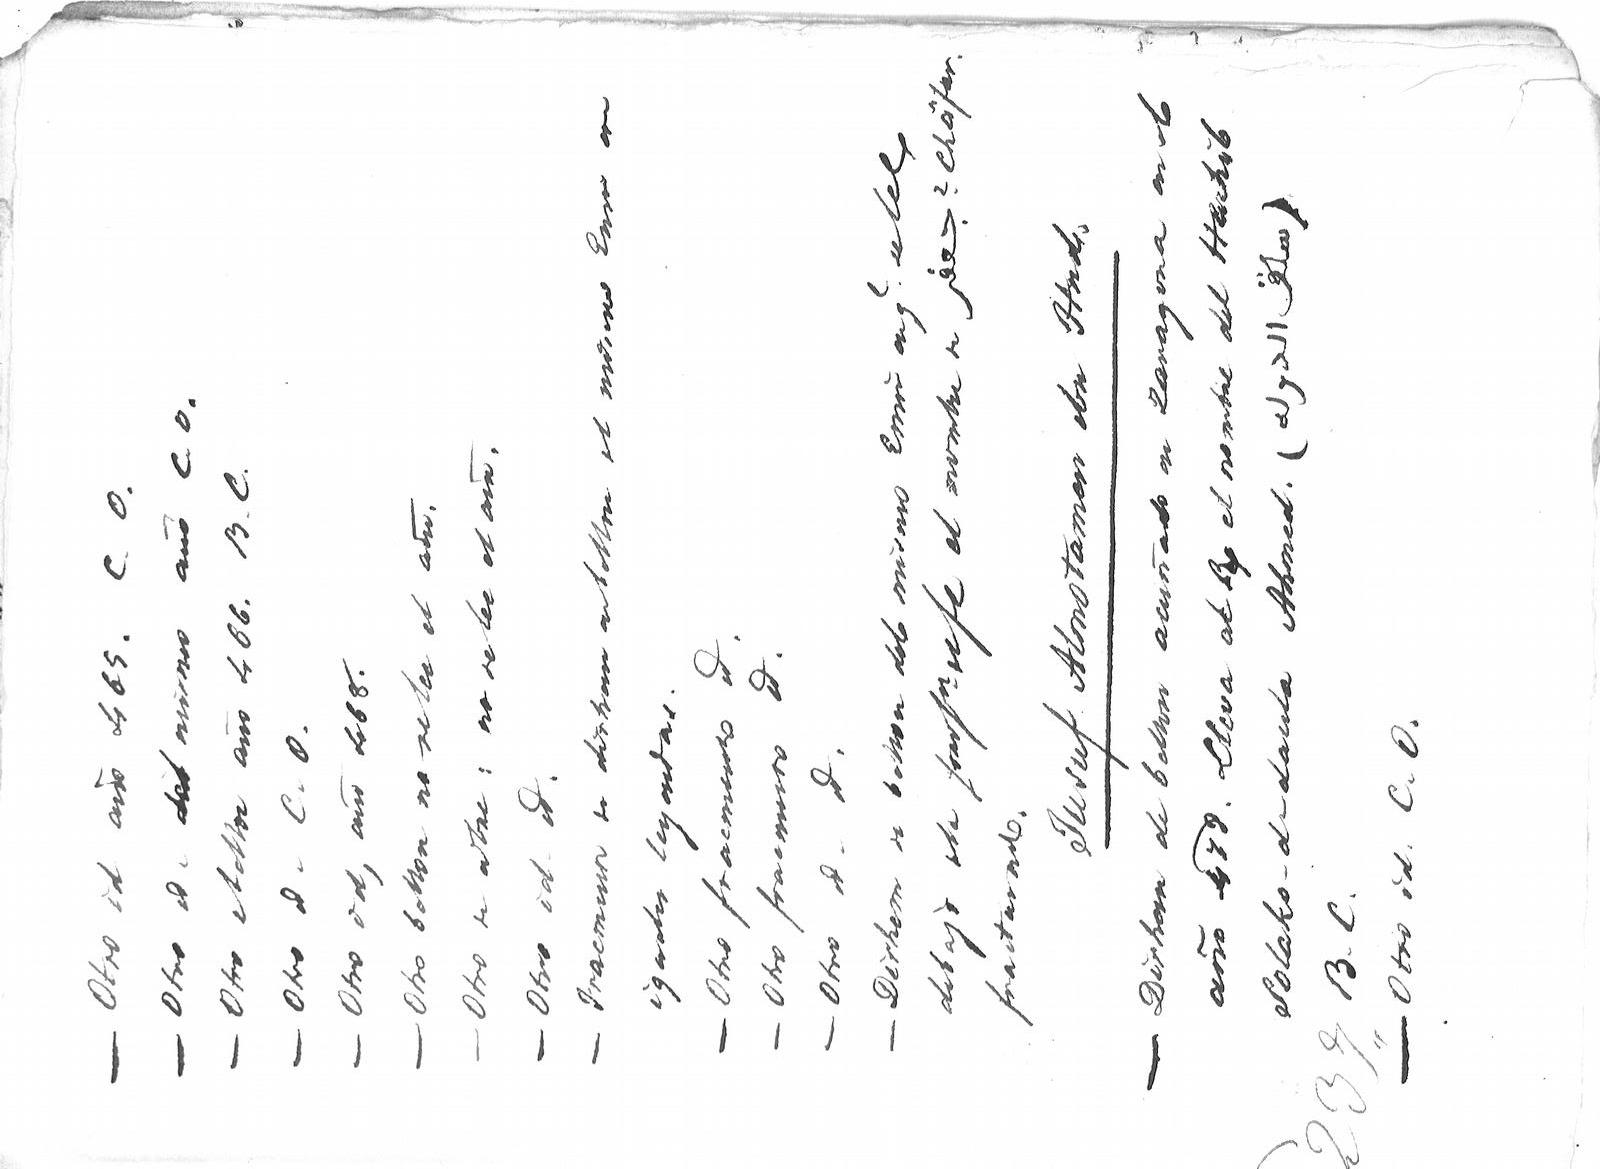 — Otro id año 465. C. O.
— Otro id. del mismo año C. O.
— Otro vellon año 466. B. C.
— Otro id. C. O.
— Otro id, año 468.
— Otro vellon no se lee el año.
— Otro de cobre: no se lee el año.
— Otro id. id.
— Fracmento de dirhem vellon el mismo Emir con
iguales leyendas.
— Otro fracmento id.
— Otro fracmento id.
— Otro id. id.
— Dirhem de vellon del mismo Emir en q.e se lee
debajo de la el nombre de جعفر ? Cháfar.
fracturado.
Yusuf Almotamen ebn Hud.
— Dirhem de vellon acuñado en Zaragoza en el
año 478. Lleva al Rev el nombre del Hachib
Seifo-d-daula Ahmed. (سيف الدولة)
B. C.
— Otro id. C. O.
237